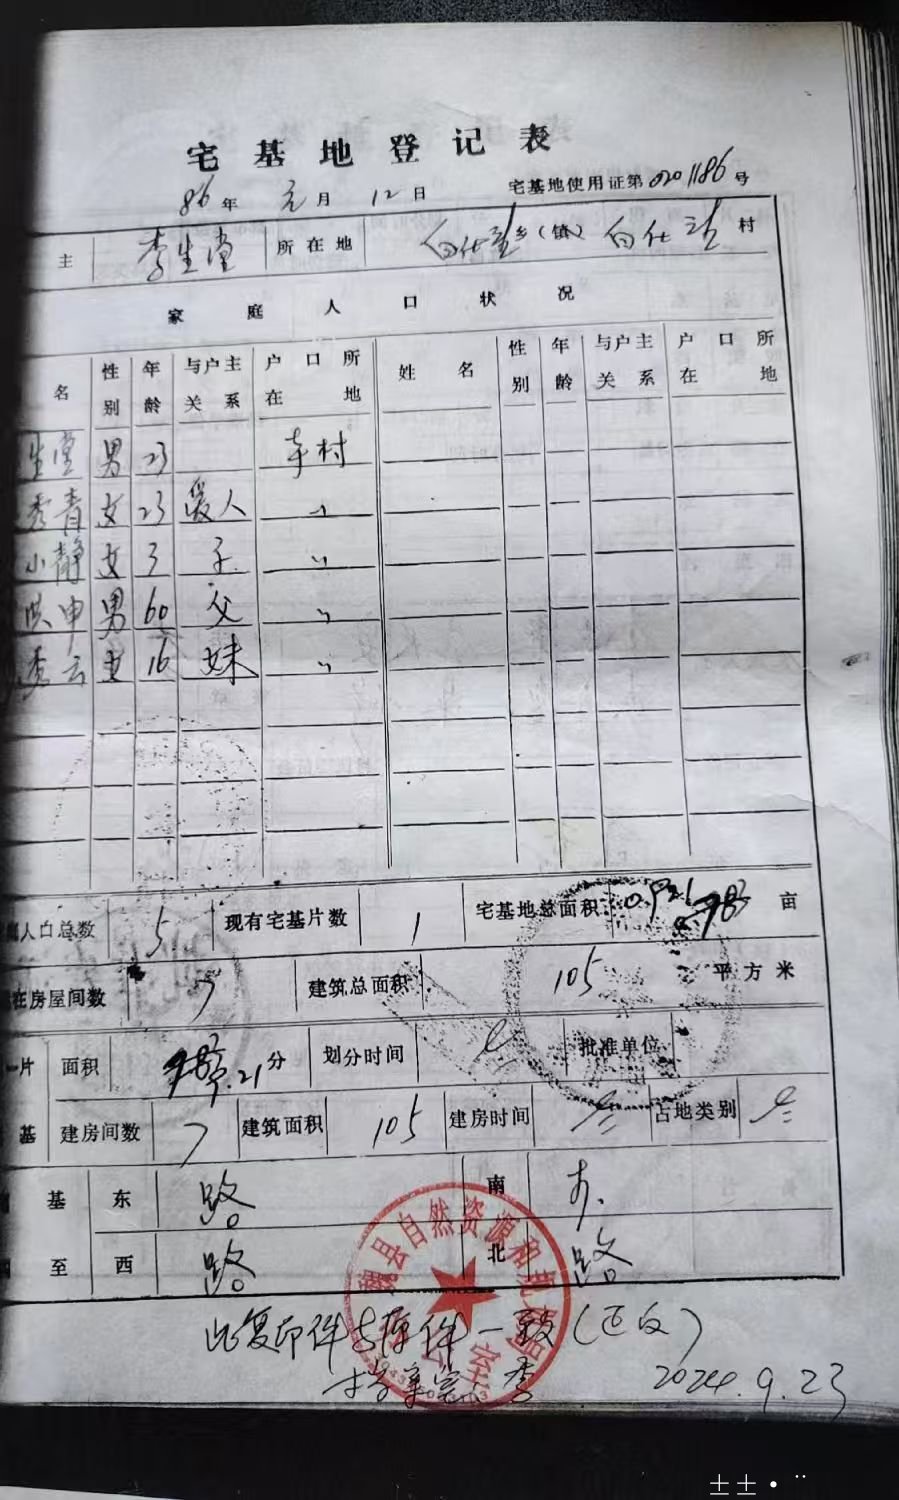 宅基地登记表
86年 元月 12日 宅基地使用证第0201186号
主 李生堂 所在地 向仕望乡(镇) 向仕望村
家庭人口状况
名 性别 年龄 与户主关系 户口所在地 姓名 性别 年龄 与户主关系 户口所在地
生堂 男 23 本村
秀青 女 23 爱人 〃
小静 女 3 子 〃
洪申 男 60 父 〃
秀云 女 16 妹 〃
人口总数 5 现有宅基片数 1 宅基地总面积 亩
在房屋间数 7 建筑总面积 105 平方米
一片 面积 分 划分时间 批准单位
基 建房间数 7 建筑面积 105 建房时间 占地类别
基 东 路 南
至 西 路 北 路
魏县自然资源和规划局
办公室
此复印件与原件一致(正反)
档案室 李
2024.9.23
士士·¨